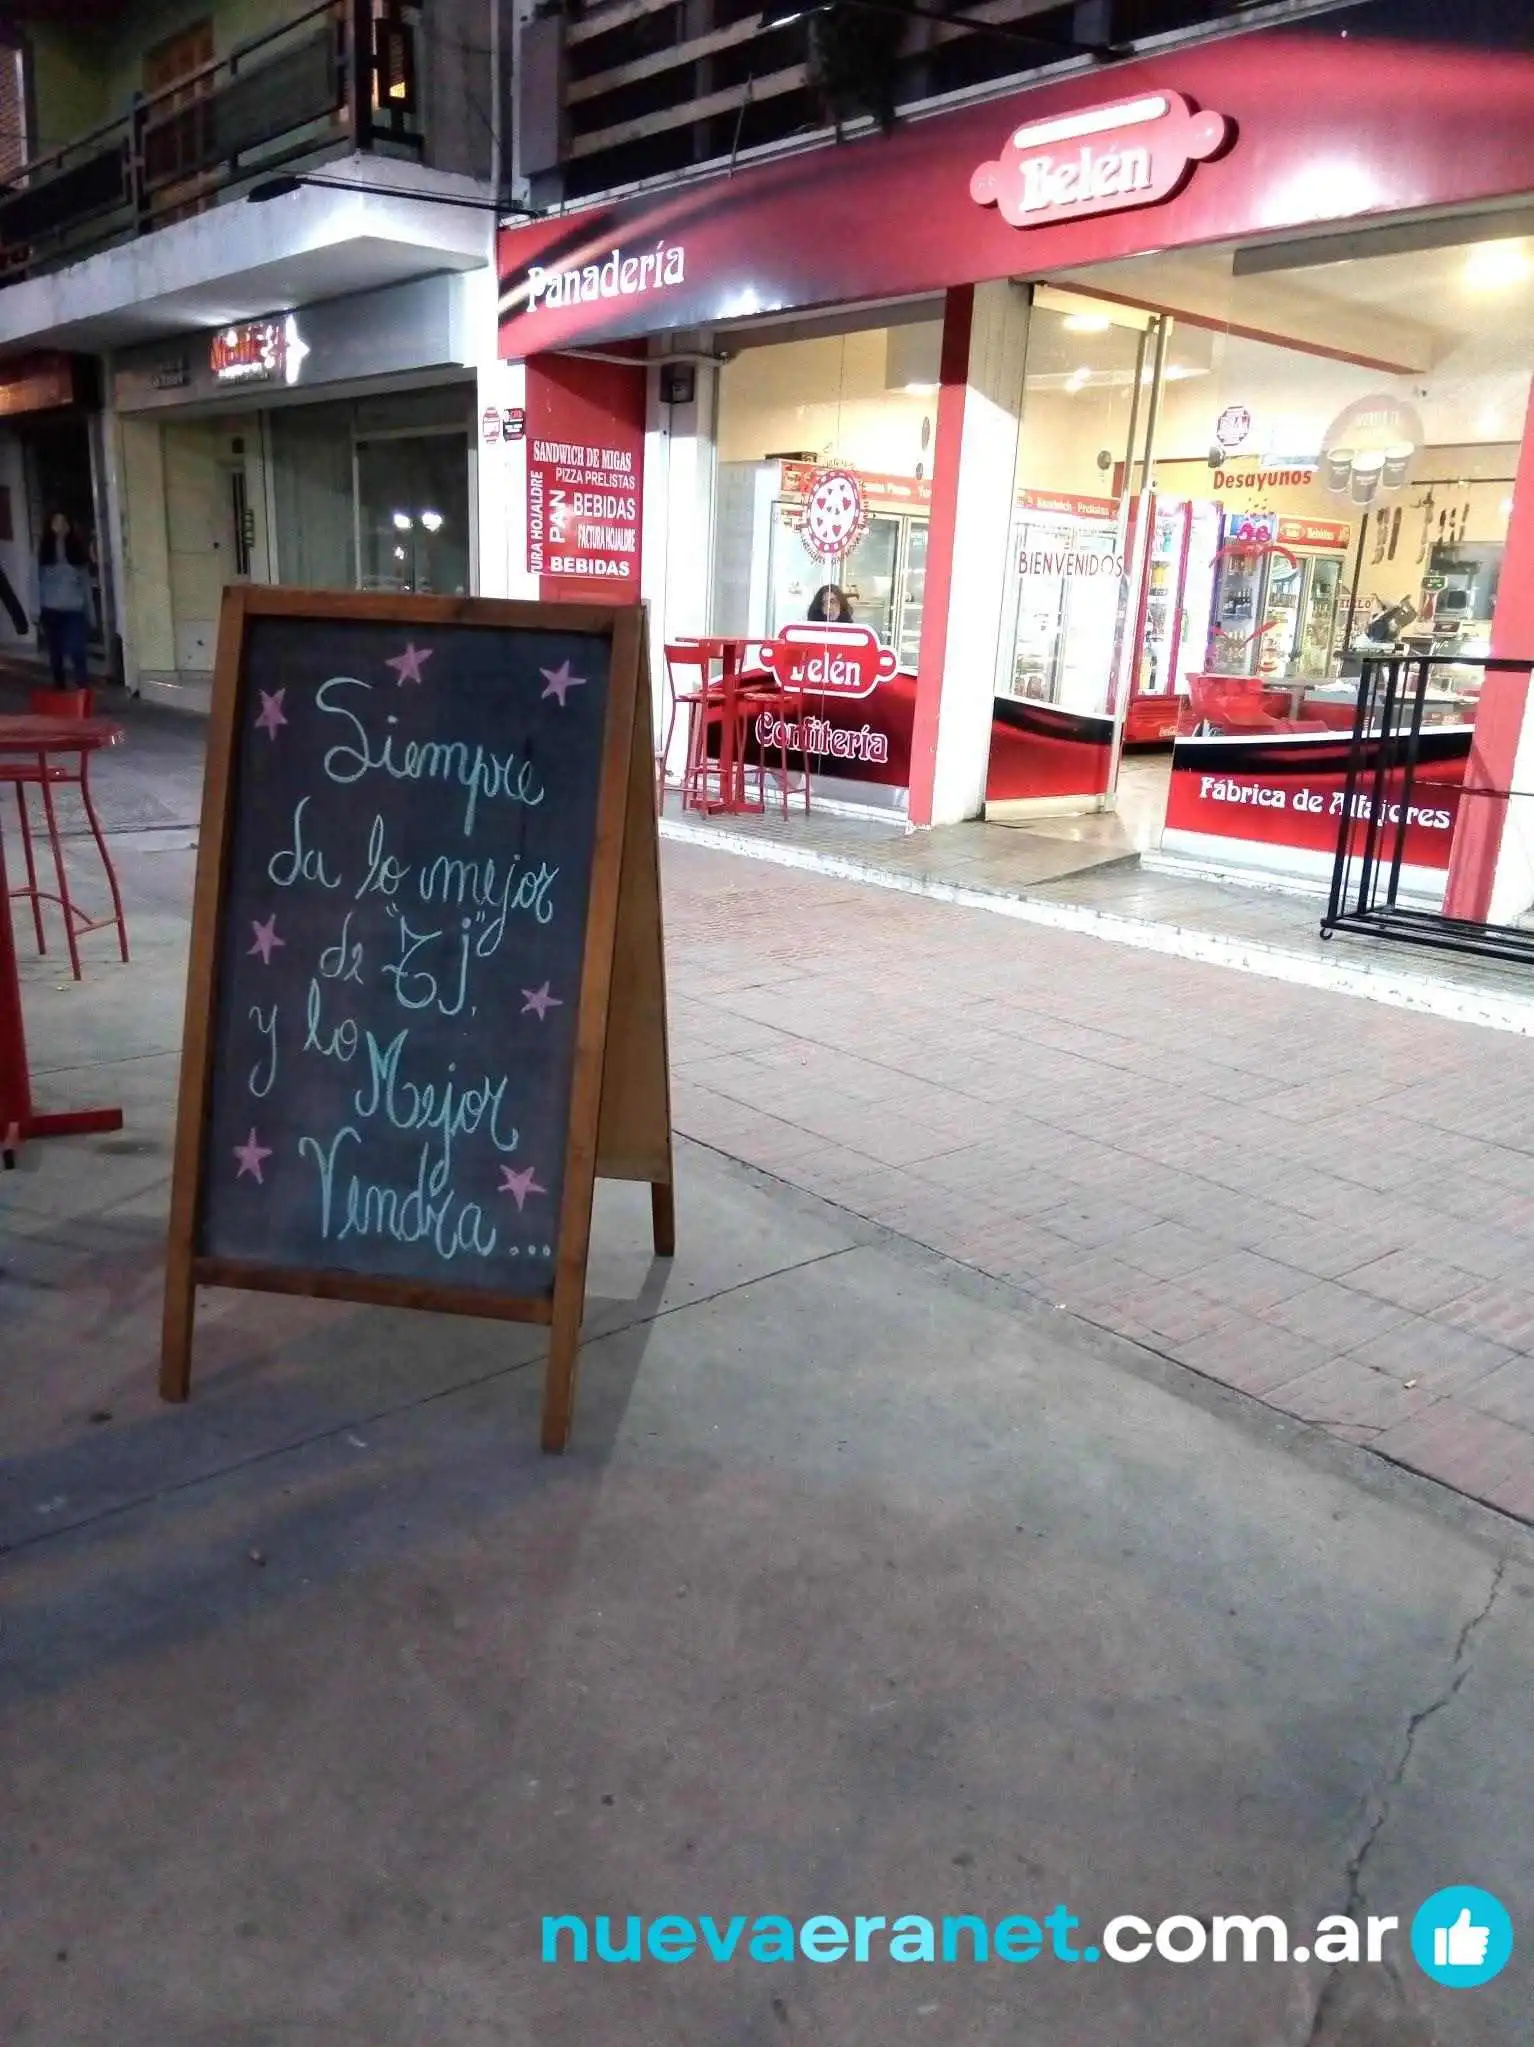 Belén
Panadería
SANDWICH DE MIGAS
PIZZA PRELISTAS
PAN
BEBIDAS
FACTURA HOJALDRE
URA HOJALDRE
BEBIDAS
Desayunos
BIENVENIDOS
Belén
Confitería
Fábrica de Alfajores
Siempre
da lo mejor
de "Tj".
y lo
Mejor
Vendra...
nuevaeranet.com.ar